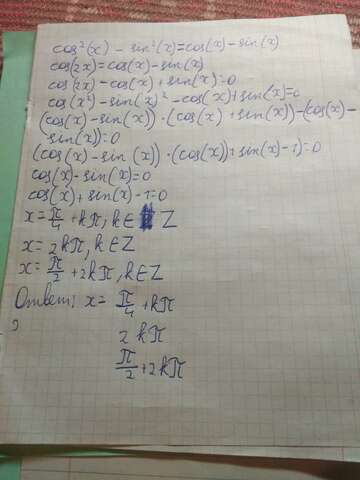 cos²(x) - sin²(x)=cos(x)-sin(x)
cos(2x)=cos(x)-sin(x)
cos(2x)-cos(x)+sin(x)=0
cos(x²)-sin(x)²-cos(x)+sin(x)=0
(cos(x)-sin(x))·(cos(x)+sin(x))-(cos(x)-
sin(x))=0
(cos(x)-sin(x))·(cos(x))+sin(x)-1)=0
cos(x)-sin(x)=0
cos(x)+sin(x)-1=0
x=π/4+kπ, k∈Z
x=2kπ, k∈Z
x=π/2+2kπ, k∈Z
Ответ: x=π/4+kπ
2kπ
π/2+2kπ